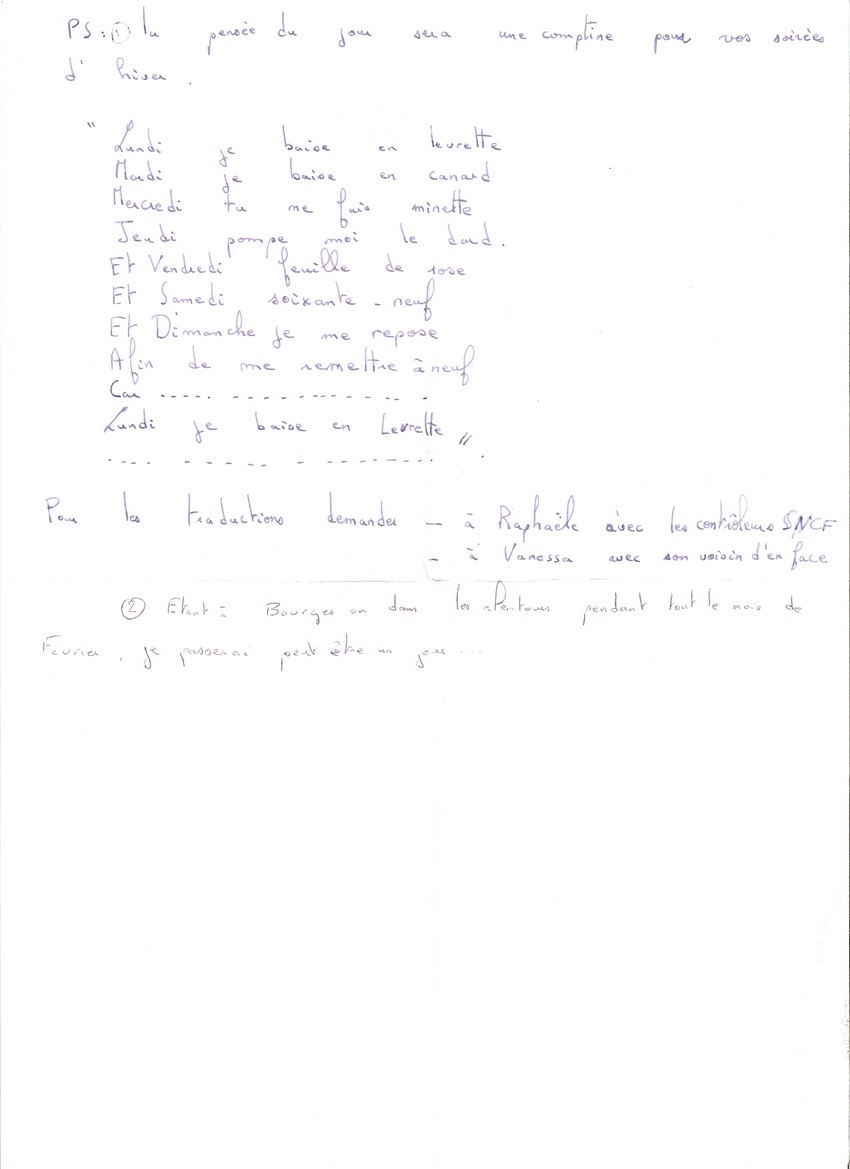 PS : ① La pensée du jour sera une comptine pour vos soirées
d' hiver .
" Lundi je baise en levrette
Mardi je baise en canard
Mercredi tu me fais minette
Jeudi pompe moi le dard .
Et Vendredi feuille de rose
Et Samedi soixante - neuf
Et Dimanche je me repose
Afin de me remettre à neuf
Car ..... .............
Lundi je baise en Levrette " .
.... ...... . ...........
Pour les traductions demander - à Raphaële avec les contrôleurs SNCF
- à Vanessa avec son voisin d'en face
② Etant : Bourges ou dans les alentours pendant tout le mois de
Fevrier , je passerai peut être un jour ...